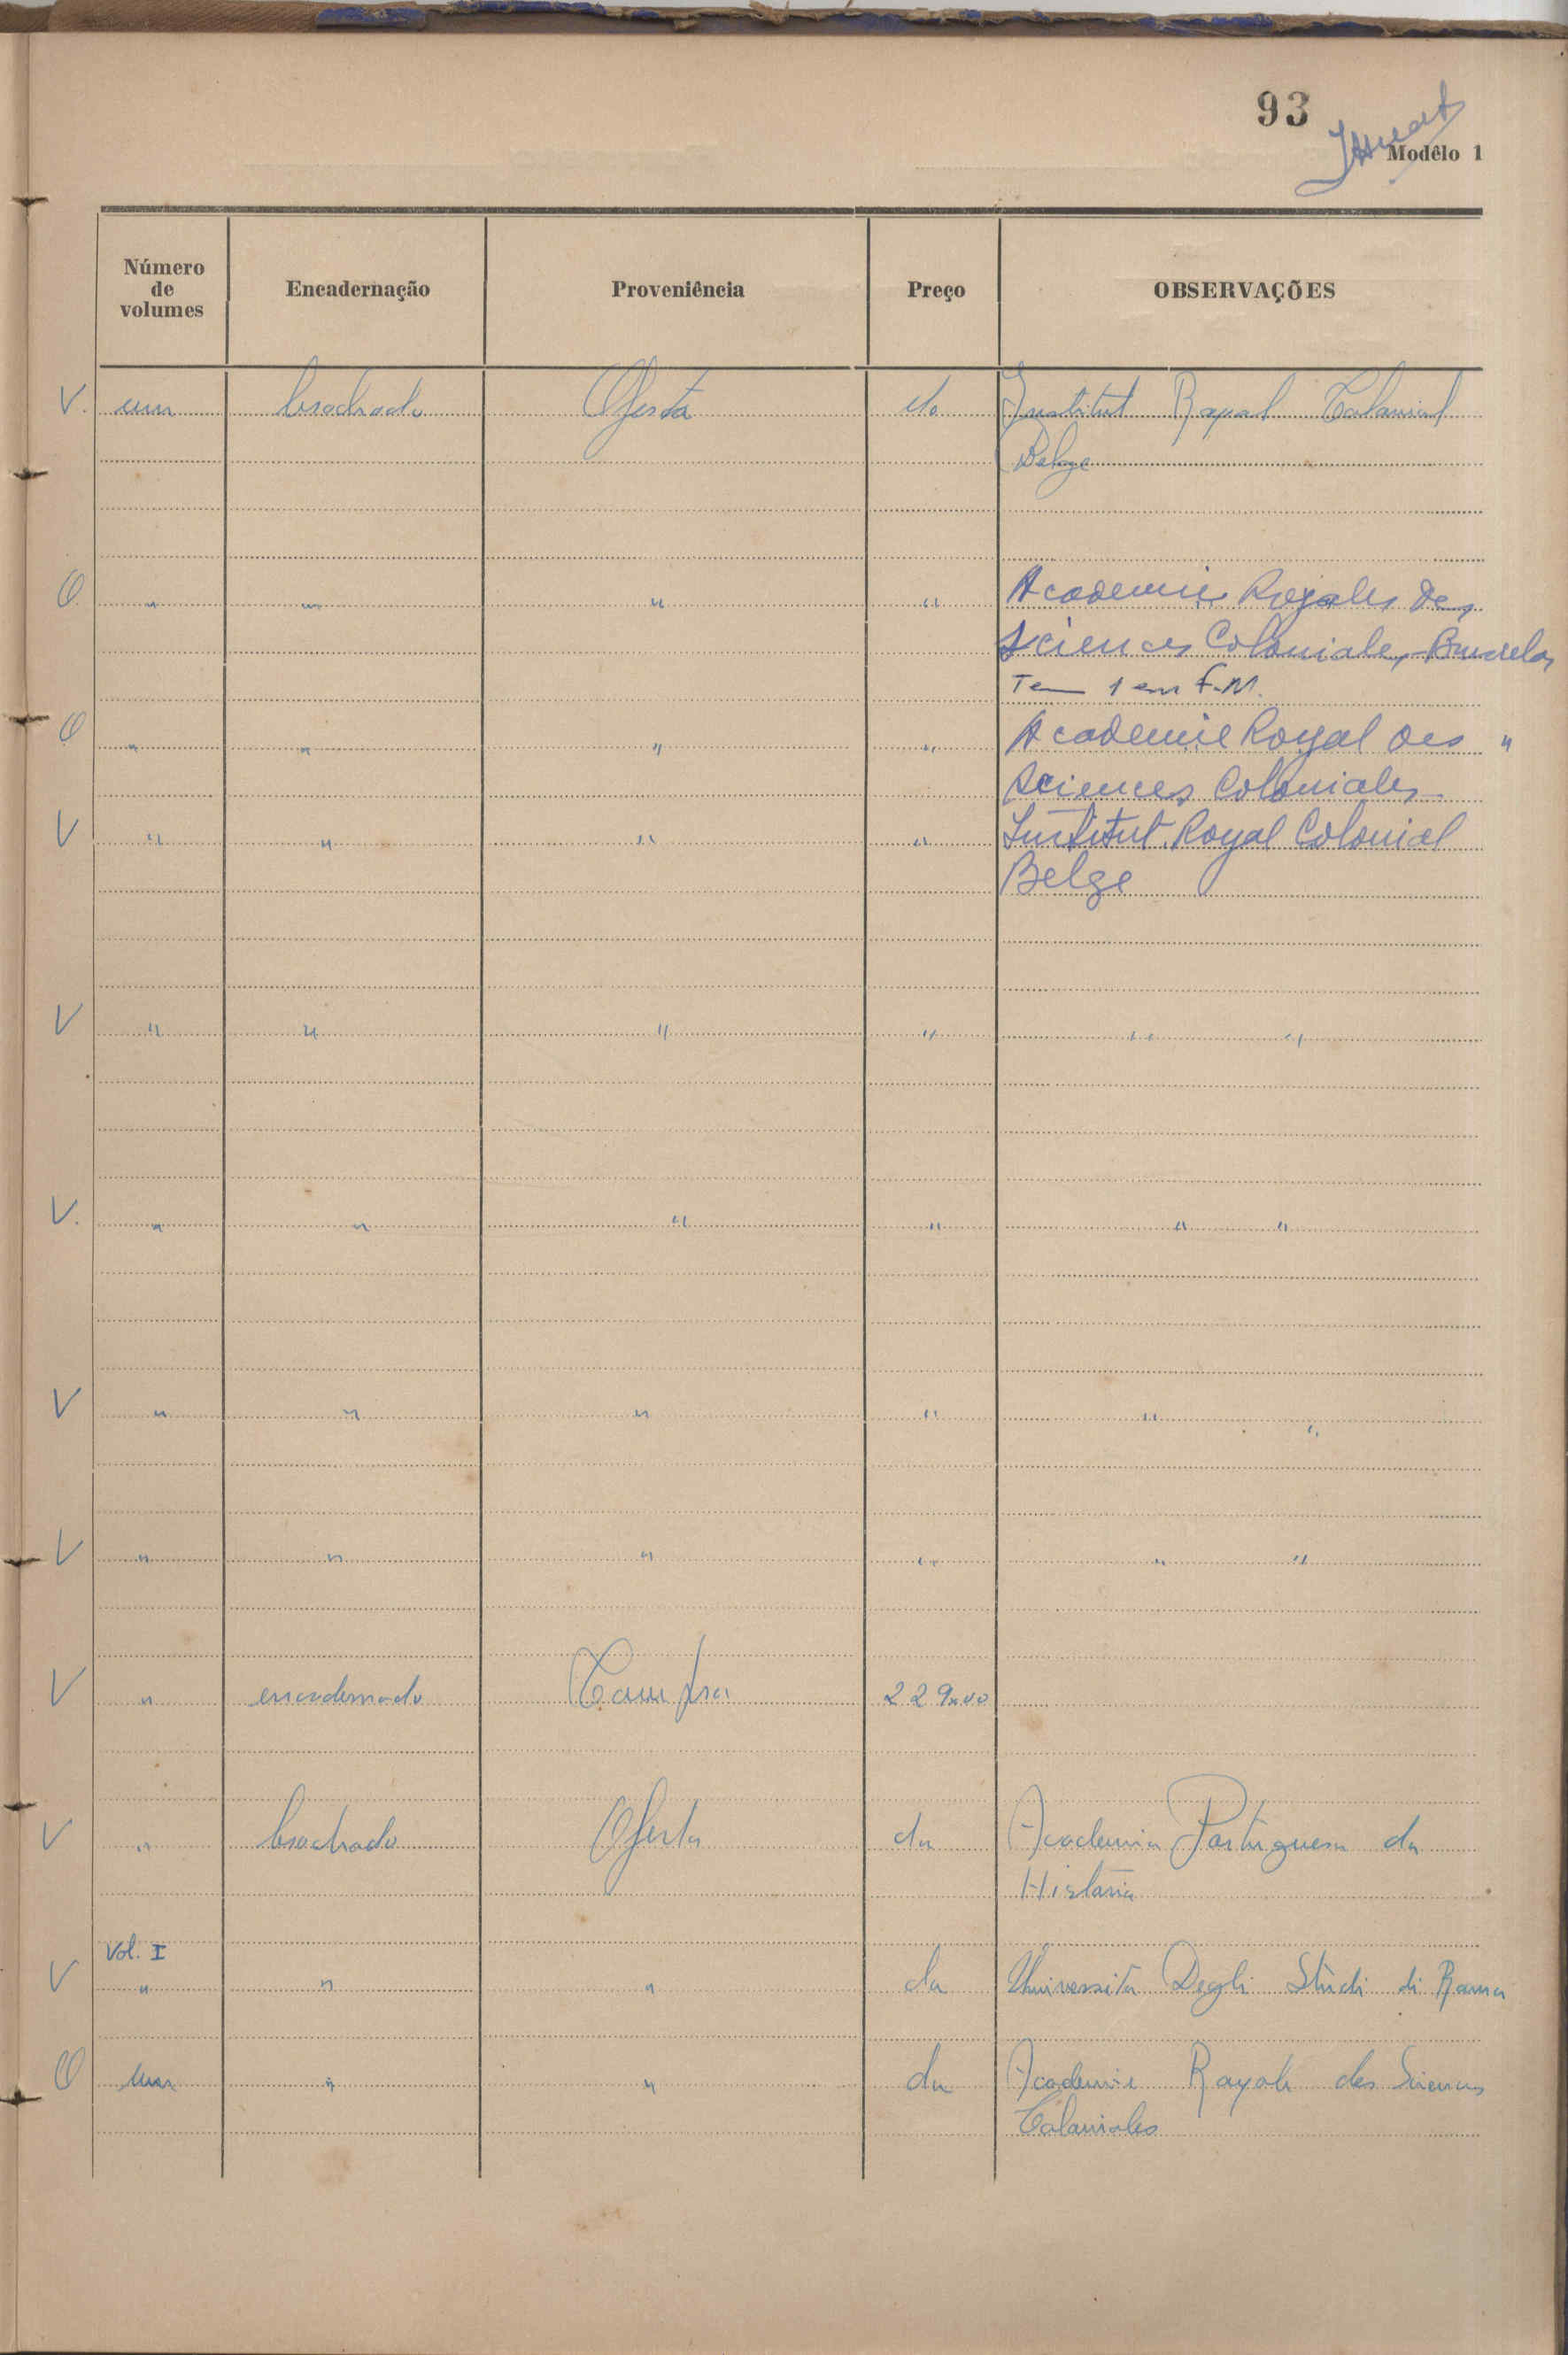 93
Modêlo 1
Número de volumes Encadernação Proveniência Preço OBSERVAÇÕES
V. um brochado Oferta do Institut Royal Colonial
Belge
O. " " " " Academie Royales des
Sciences Coloniales, Bruxelas
Tem 1 em F.M.
O " " " " Academie Royal des "
Sciences Coloniales
V " " " " Institut Royal Colonial
Belge
V " " " " " "
V. " " " " " "
V " " " " " "
V " " " " " "
V " encadernado Compra 229x00
V " brochado Oferta da Academia Portuguesa da
História
Vol. I
V " " " da Università Degli Studi di Roma
O um " " da Academie Royale des Sciences
Coloniales